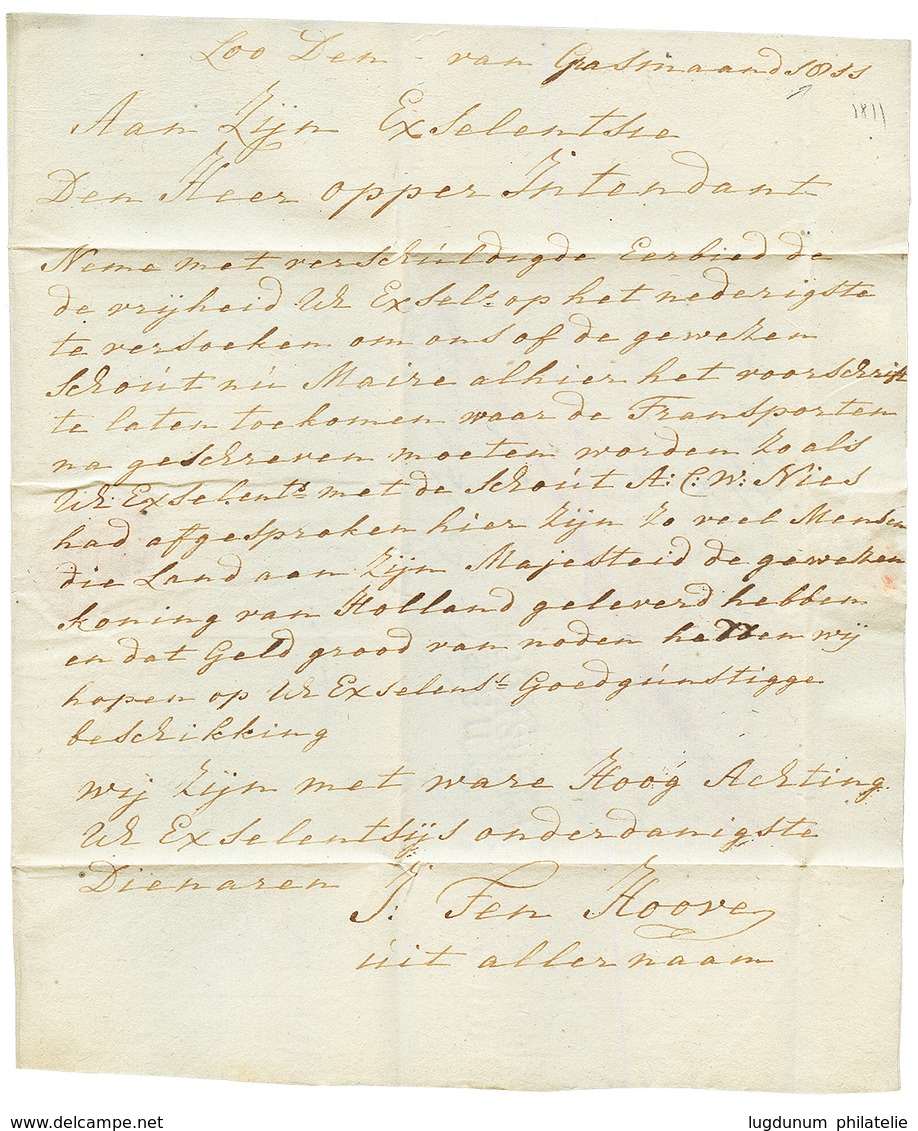 Loo Den - van Grasmaand 1811
1811
Aan Zijn Exselentsie
Den Heer opper Intendant
Neme met verschuldigde Eerbied de
de vrijheid UE Exsels. op het nederigste
te versoeken om ons of de geweken
Schout nu Maire alhier het voorschrift
te laten toekomen waar de Transporten
na geschreven moeten worden zo als
UE: Exselents met de Schout A: C: W: Nies
had afgesproken hier zijn zo veel Mensen
die Land aan Zijn Majesteid de geweken
koning van Holland geleverd hebben
en dat Geld grood van noden hebben wij
hopen op UE Exselenst Goedgunstigge
beschikking
wij zijn met ware Hoog Achting
UE Exselentsijs onderdanigste
Dienaren
J: Ten Hoove
uit aller naam
delcampe.net
lugdunum philatelie